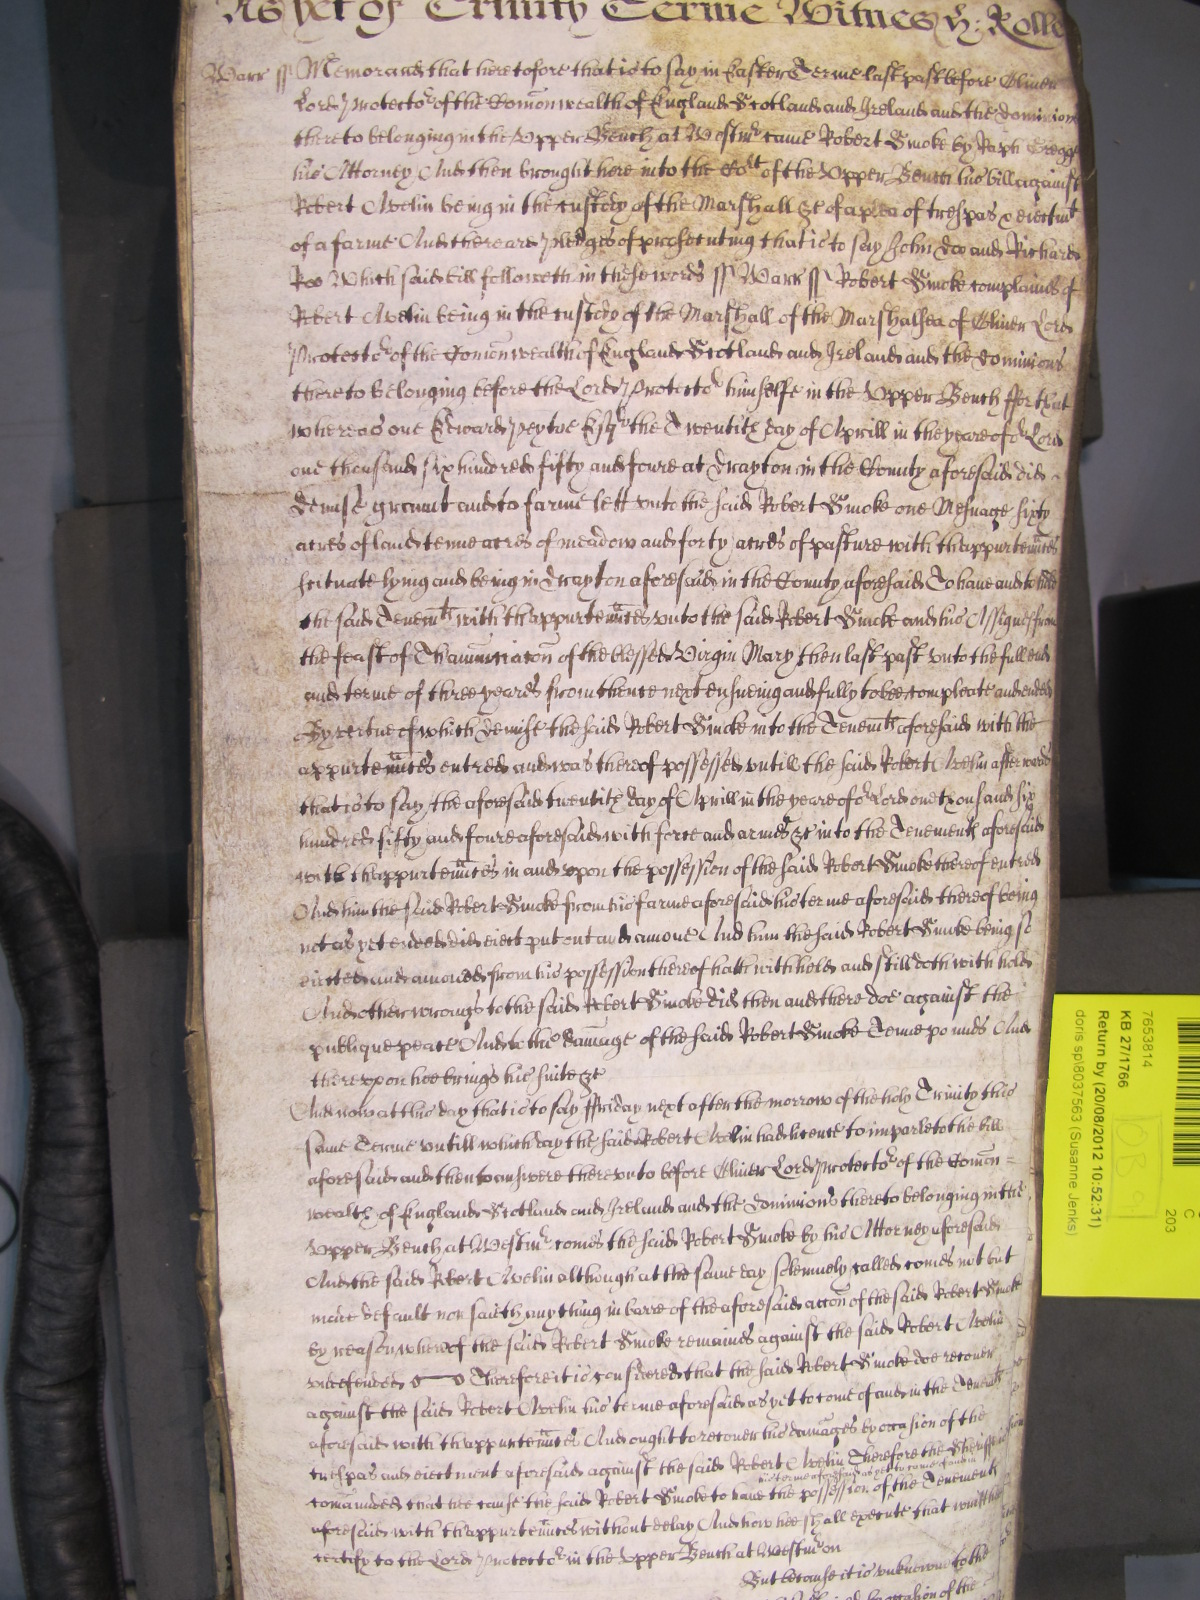 As yet of Trinity Terme Witnes H: Rolle
Warr ss Memorand that heretofore that is to say in Easter Terme last past before Oliver
Lord Protector of the Comonwealth of England Scotland and Ireland and the dominions
thereto belonging in the Upper Bench at Westmr came Robert Smoke by Raph Gregge
his Attorney And then brought here into the Cort of the Upper Bench his bill against
Robert Avelin being in the custody of the Marshall &c of a plea of trespas & eiectmt
of a farme And there are pledges of prosecuting that is to say John Doo and Richard
Roo Which said bill followeth in these words ss Warr ss Robert Smoke complaines of
Robert Avelin being in the custody of the Marshall of the Marshalsea of Oliver Lord
Protector of the Comonwealth of England Scotland and Ireland and the dominions
thereto belonging before the Lord Protector himselfe in the Upper Bench ffor that
whereas one Edward Peytoe Esqr the Twentith day of Aprill in the yeare of or Lord
one thousand six hundred fifty and foure at Drayton in the County aforesaid did
demise graunt and to farme lett unto the said Robert Smoke one Mesuage sixty
acres of land tenne acres of meadow and forty acres of pasture with thappurtennces
scituate lying and being in Drayton aforesaid in the County aforesaid To have and to hold
the said Tenemts with thappurtennces unto the said Robert Smoke and his Assignes from
the feast of Thanunciacon of the blessed Virgin Mary then last past unto the full end
and terme of three yeares from thence next ensueing and fully to bee compleate and ended
By vertue of which demise the said Robert Smoke into the Tenemts aforesaid with the
appurtennces entred and was thereof possessed untill the said Robert Avelin afterwards
that is to say the aforesaid twentith day of Aprill in the yeare of or Lord one thousand six
hundred fifty and foure aforesaid with force and armes &c into the Tenements aforesaid
with thappurtennces in and upon the possession of the said Robert Smoke thereof entred
And him the said Robert Smoke from his farme aforesaid his terme aforesaid thereof being
not as yet ended did eiect put out and amove And him the said Robert Smoke being so
eiected and amoved from his possession thereof hath withheld and still doth withhold
And other wrongs to the said Robert Smoke did then and there doe against the
publique peace And to the damage of the said Robert Smoke Tenne pounds And
thereupon hee brings his suite &c
And now at this day that is to say ffriday next after the morrow of the holy Trinity this
same Terme untill which day the said Robert Avelin had licence to imparle to the bill
aforesaid and then to answere thereunto before Oliver Lord Protector of the Comon=
wealth of England Scotland and Ireland and the dominions thereto belonging in the
Upper Bench at Westmr comes the said Robert Smoke by his Attorney aforesaid
And the said Robert Avelin although at the same day solemnely called comes not but
made default nor saith any thing in barre of the aforesaid accon of the said Robert Smoke
by reason whereof the said Robert Smoke remaines against the said Robert Avelin
undefended Therefore it is considered that the said Robert Smoke doe recover
against the said Robert Avelin his terme aforesaid as yet to come of and in the Tenemts
aforesaid with thappurtennces And ought to recover his damages by occasion of the
trespas and eiectment aforesaid against the said Robert Avelin Therefore the Sheriffe is
his terme aforesaid as yet to come of and in
comanded that hee cause the said Robert Smoke to have the possession of the Tenements
aforesaid with thappurtennces without delay And how hee shall execute that writt
certify to the Lord Protector in the Upper Bench at Westmr on
But because it is unknowne to the
occasion of the
7653814
KB 27/1766
Return by (20/08/2012 10:52:31)
doris sp\8037563 (Susanne Jenks)
C
203